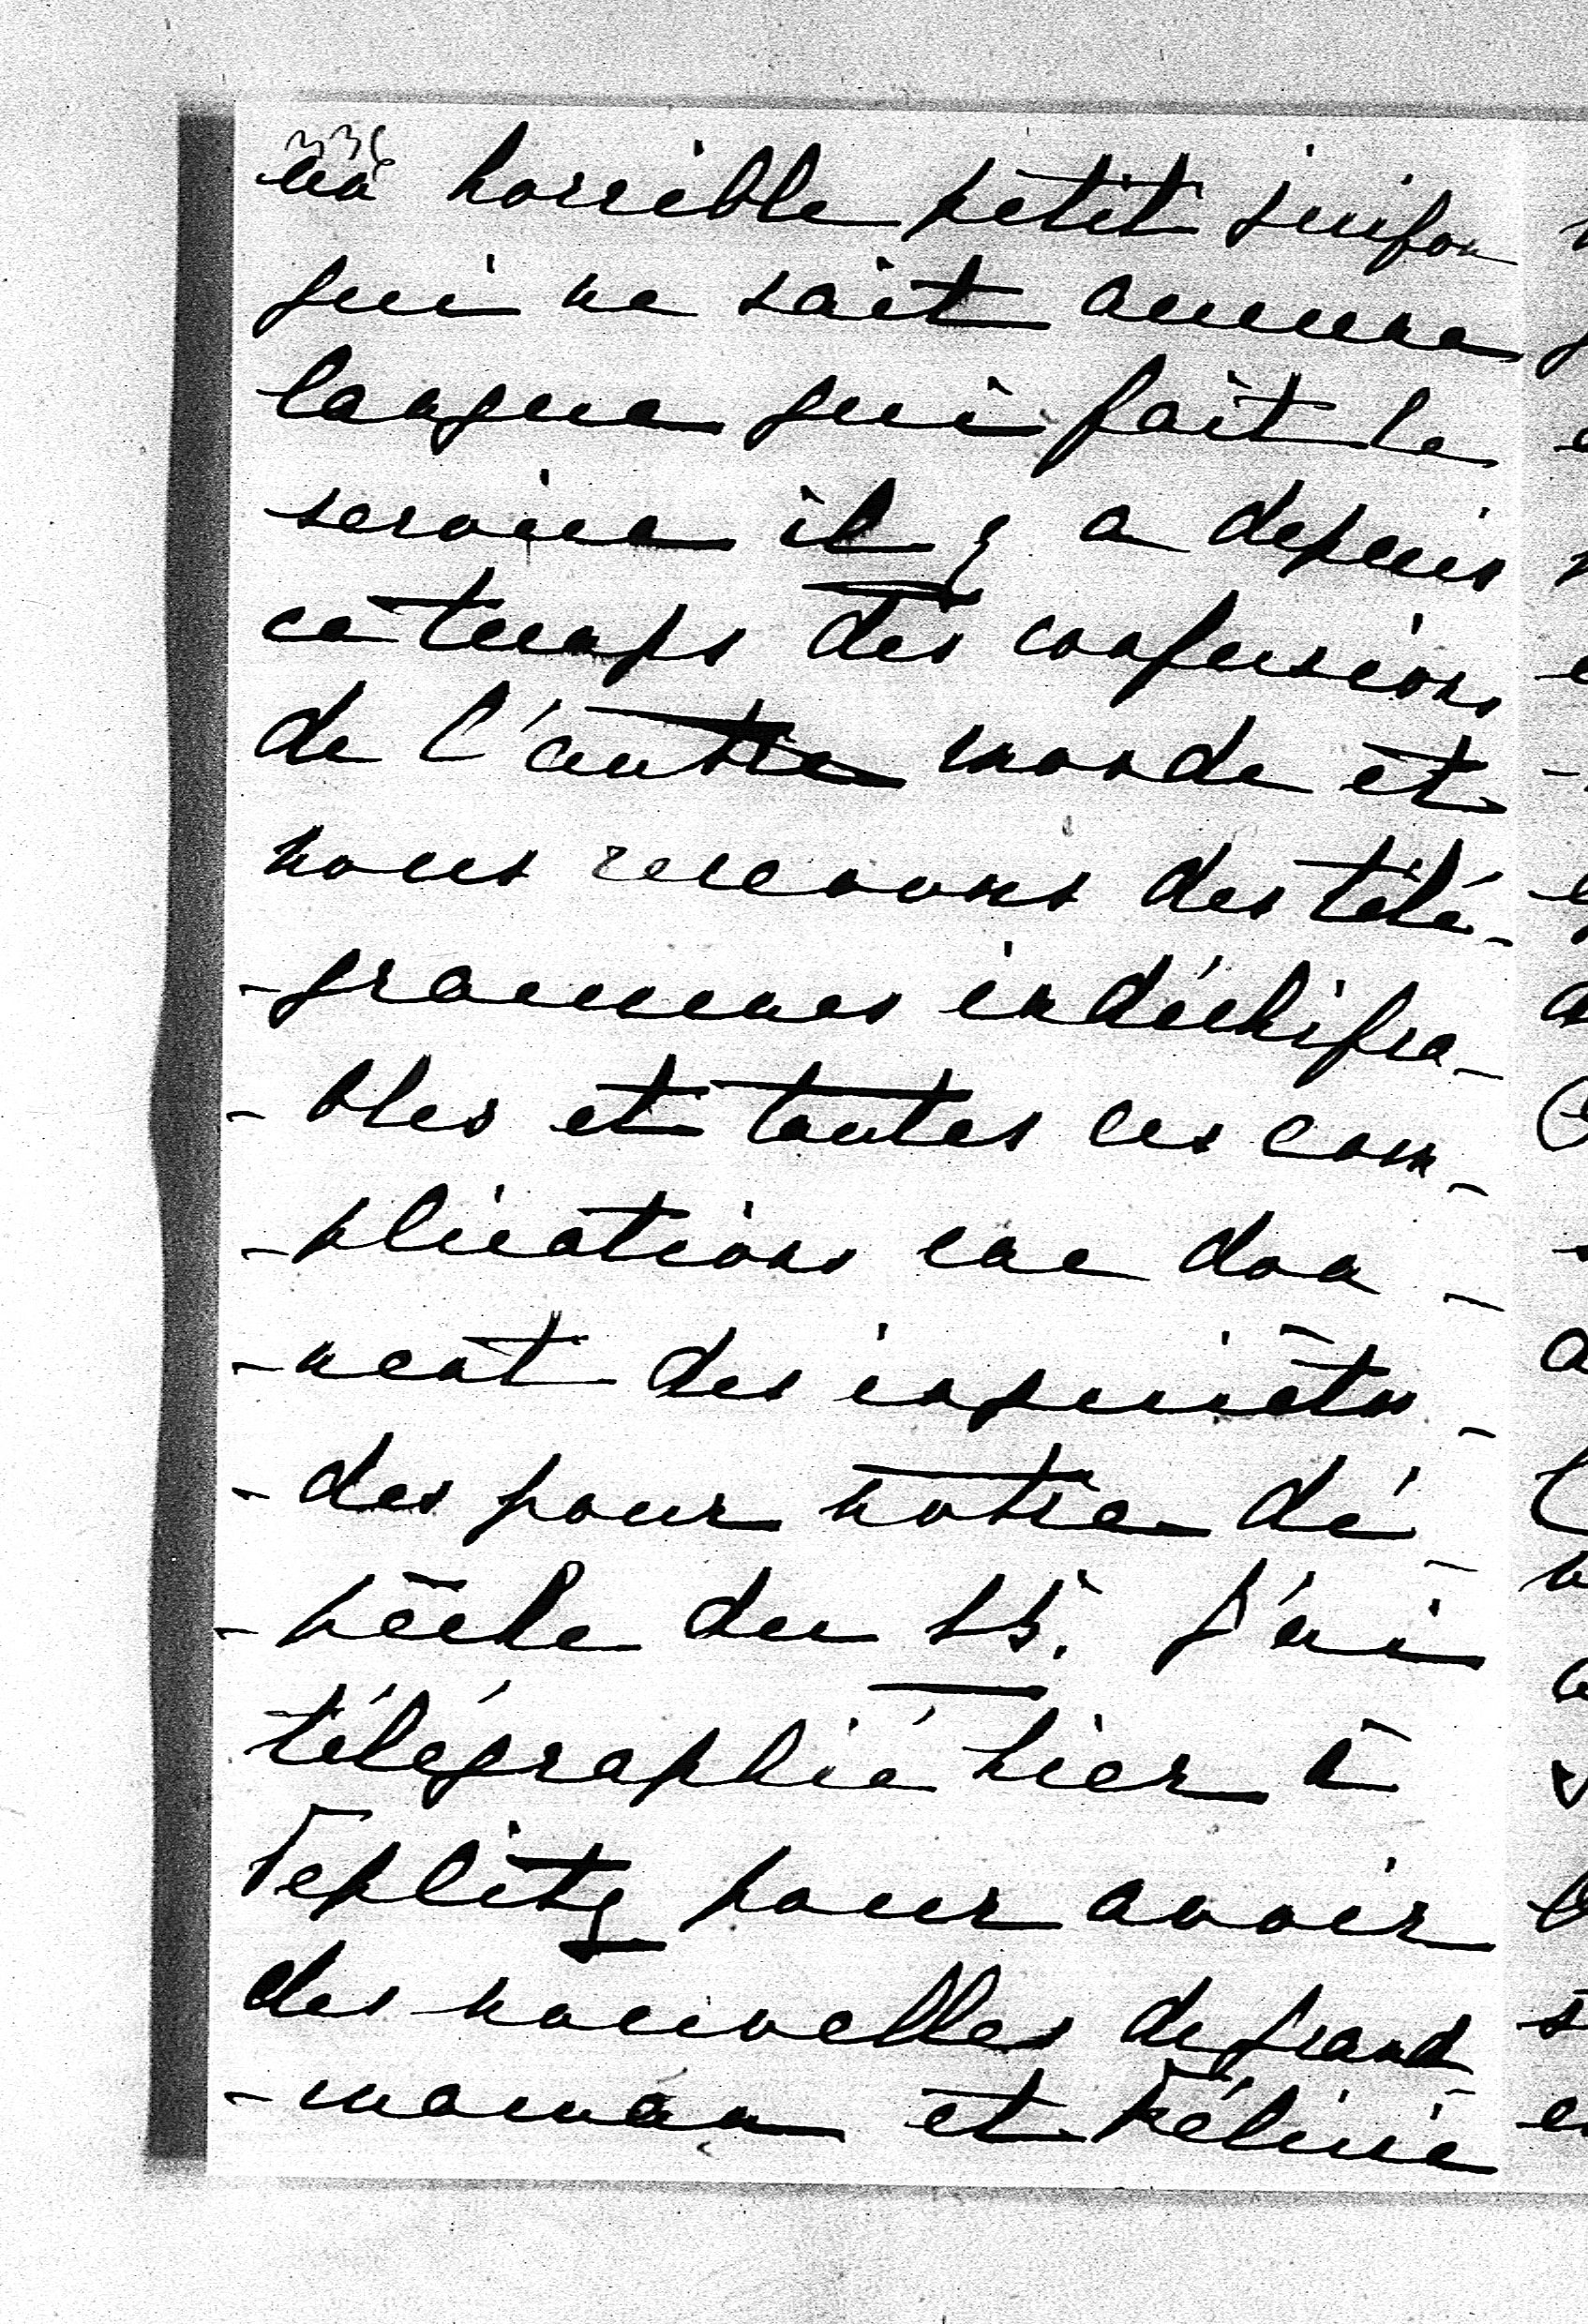 336
un horrible petit juifon
qui ne sait aucune
langue qui fait le
service il y a depuis
ce temps des confusions
de l'autre monde et
nous recevons des télé-
-grammes indéchifra-
-bles et toutes ces com-
-plications me don-
-nent des inquiétu-
-des pour notre dé-
-pêche du 15. J'ai
télégraphié hier à
Teplitz pour avoir
des nouvelles de grand
-maman et